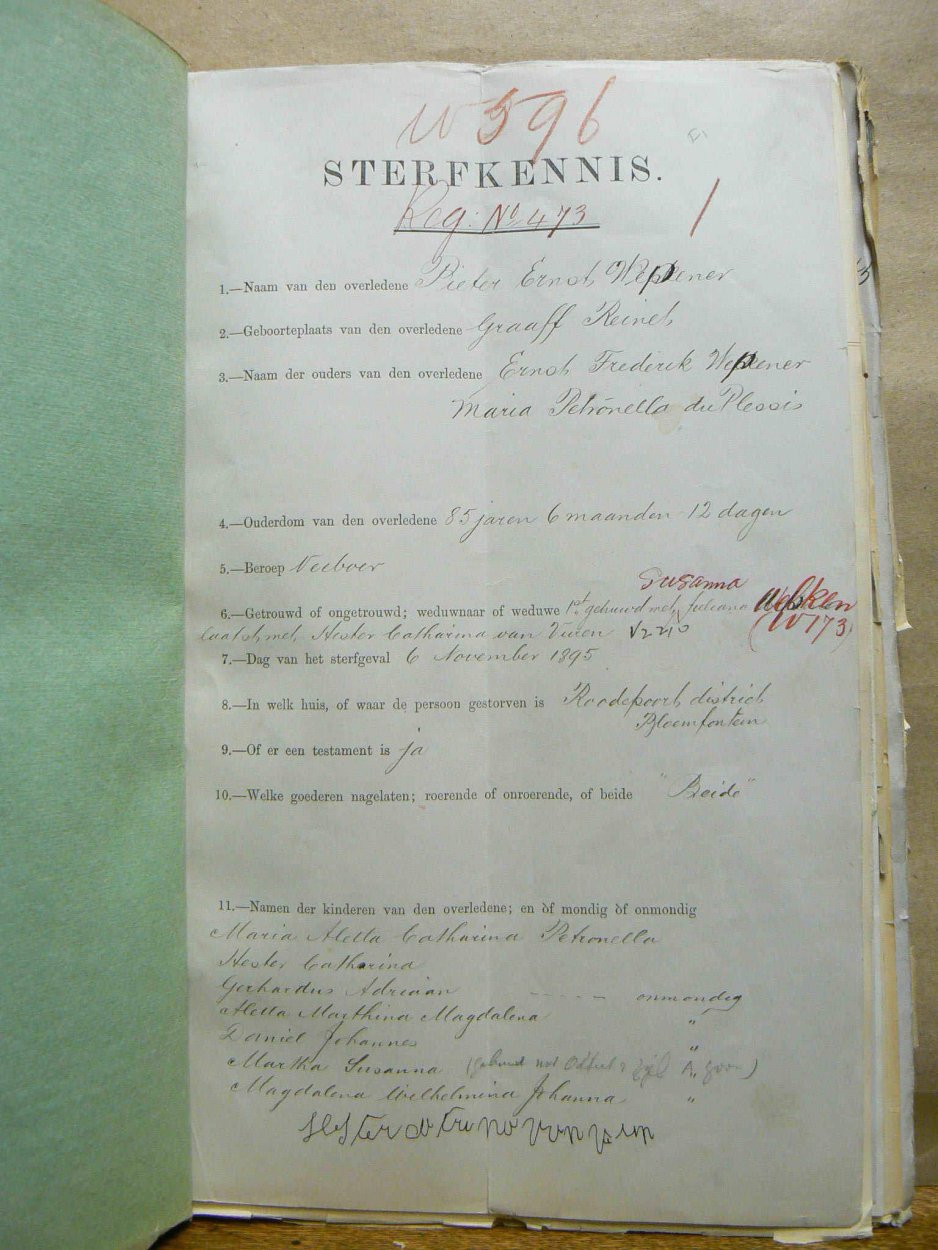 W 596
STERFKENNIS.
Reg: No 473
1
1.—Naam van den overledene Pieter Ernst Wepener
2.—Geboorteplaats van den overledene Graaff Reinet
3.—Naam der ouders van den overledene Ernst Frederik Wepener
Maria Petronella du Plessis
4.—Ouderdom van den overledene 85 jaren 6 maanden 12 dagen
5.—Beroep Veeboer
Susanna
6.—Getrouwd of ongetrouwd; weduwnaar of weduwe 1st gehuwd met Juliana
(W173)
laatst met Hester Catharina van Vuren
7.—Dag van het sterfgeval 6 November 1895
8.—In welk huis, of waar de persoon gestorven is Roodepoort district
Bloemfontein
9.—Of er een testament is ja
10.—Welke goederen nagelaten; roerende of onroerende, of beide "Beide"
11.—Namen der kinderen van den overledene; en òf mondig òf onmondig
Maria Aletta Catharina Petronella
Hester Catharina
Gerhardus Adriaan - - - - - onmondig
Aletta Marthina Magdalena "
Daniel Johannes "
Martha Susanna
Magdalena Wilhelmina Johanna "